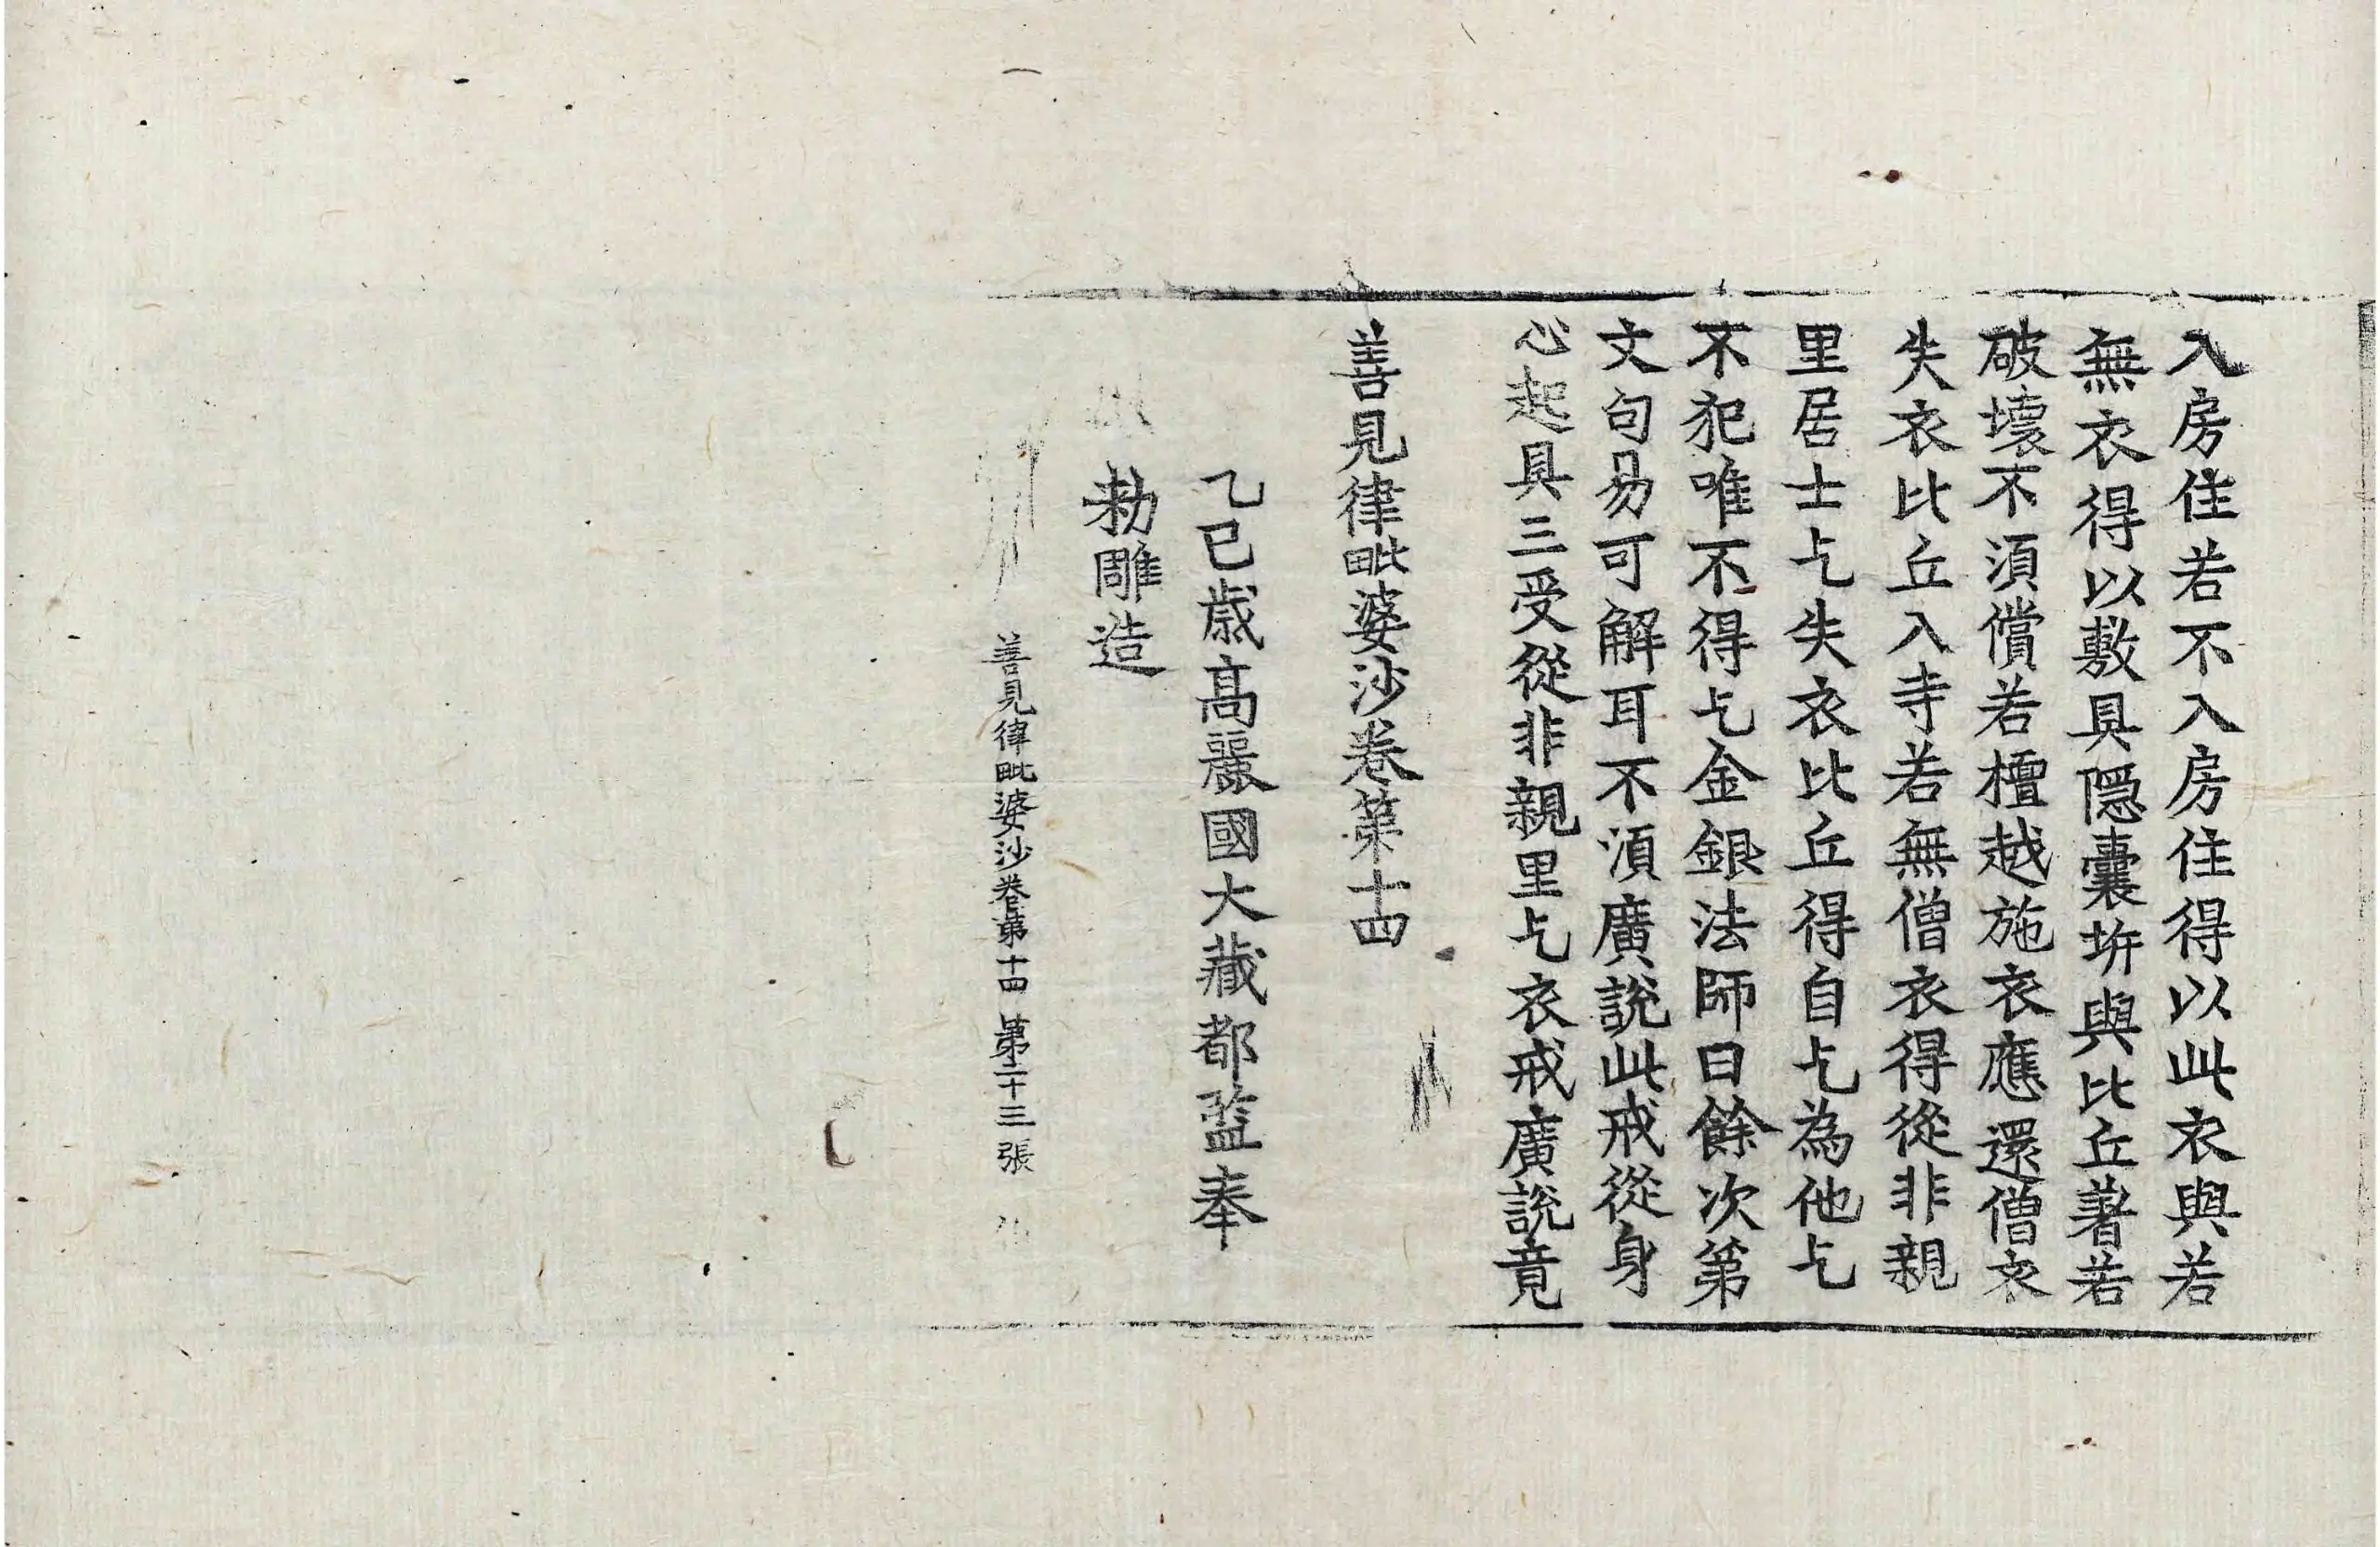 入房住若不入房住得以此衣與若
無衣得以敷具隱囊㘱與比丘著若
破壞不湏償若檀越施衣應還僧衣
失衣比丘入寺若無僧衣得從非親
里居士乞失衣比丘得自乞為他乞
不犯唯不得乞金銀法師曰餘次第
文句易可解耳不湏廣說此戒從身
心起具三受從非親里乞衣戒廣說竟
善見律毗婆沙卷第十四
乙巳歲高麗國大藏都監奉
勑雕造
善見律毗婆沙卷第十四 第二十三張